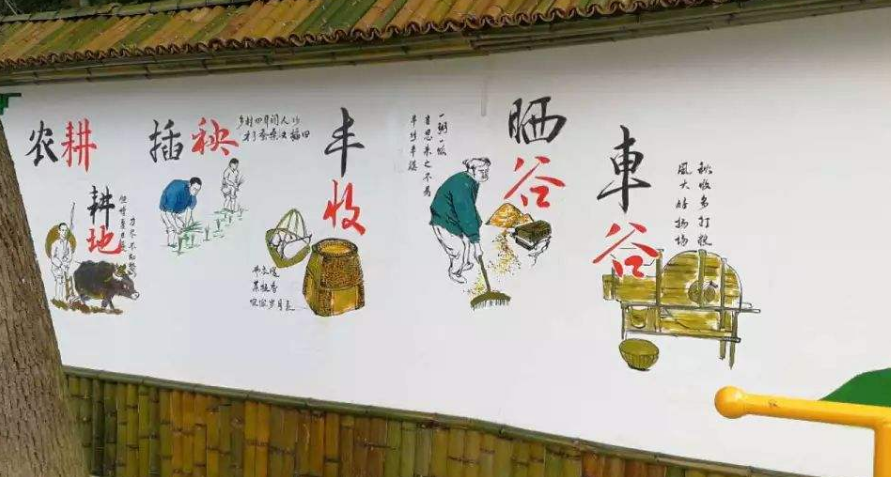 农耕
耕地
插秧
乡村四月闲人少
才了蚕桑又插田
丰收
晒谷
一粥一饭
当思来之不易
車谷
秋收多打粮
風大好扬场